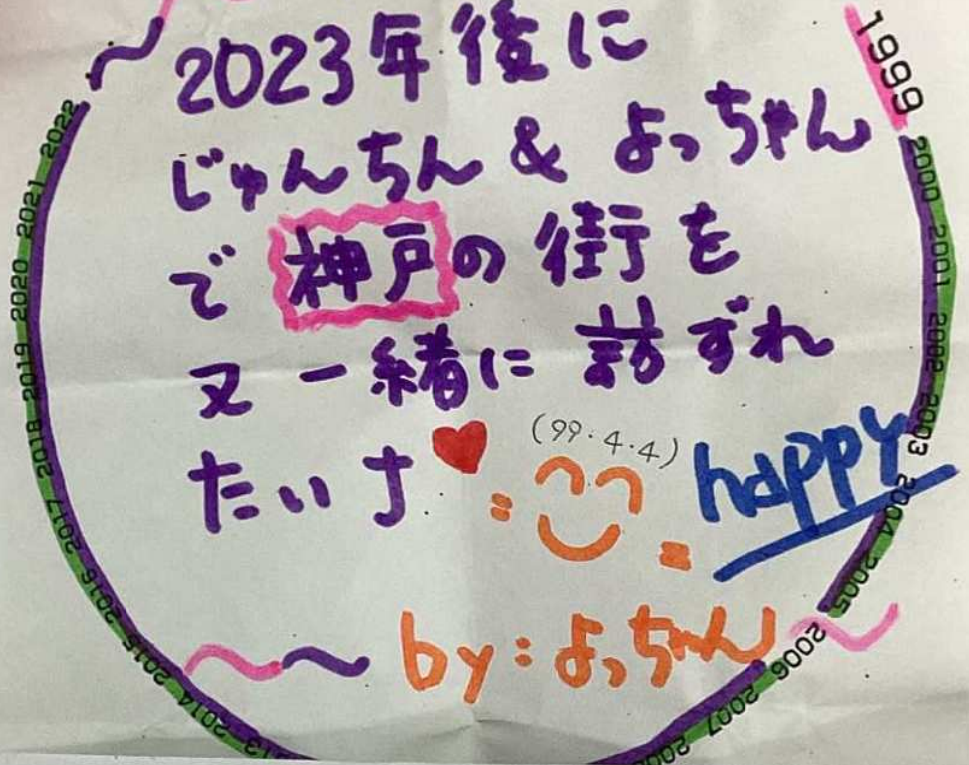 2023年後に
じゅんちん & よっちゃん
で 神戸の 街を
又 一緒に 訪ずれ
たいナ♥
(99.4.4)
= = happy
by:よっちゃん
1999
2000
2001
2002
2003
2004
2005
2006
2007
2014
2015
2016
2017
2018
2019
2020
2021
2022